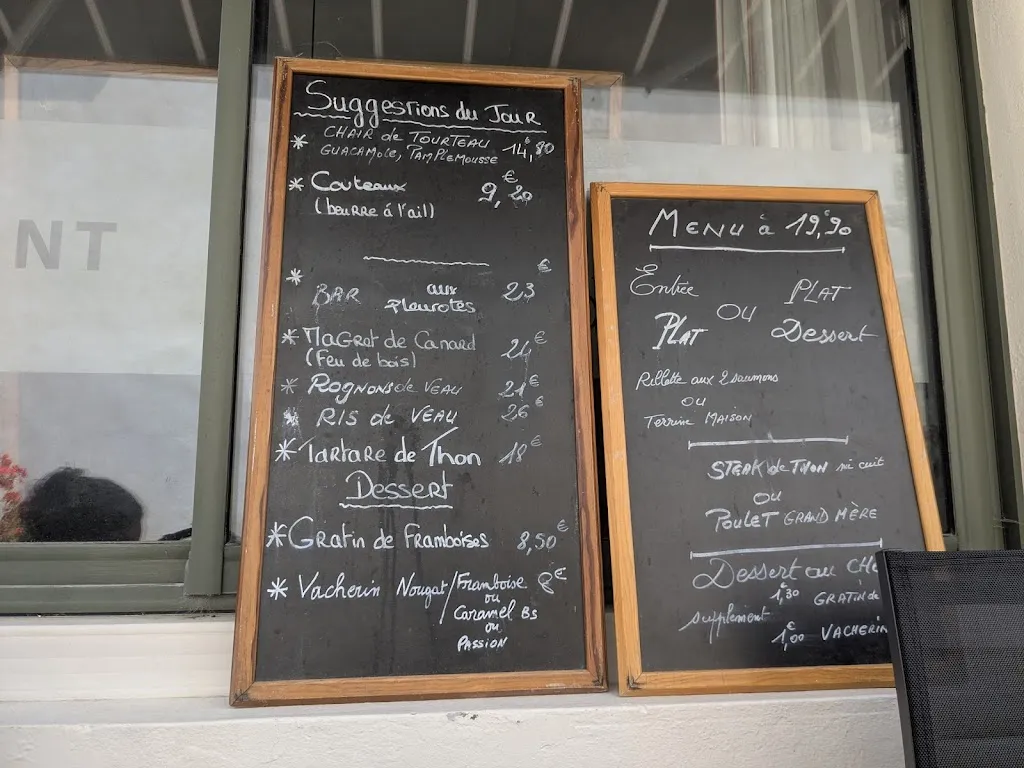 NT
Suggestions du Jour
* CHAIR de TOURTEAU 14,€80
GUACAMOLE, PAMPLEMOUSSE
* Couteaux 9,€20
(beurre à l'ail)
* BAR aux Pleurotes 23€
* MaGret de Canard 24€
(Feu de bois)
* ROGNONS de VEAU 21€
* RIS de VEAU 26€
* Tartare de Thon 18€
Dessert
* Gratin de Framboises 8,50€
* Vacherin Nougat/Framboise 8€
ou
Caramel BS
ou
PASSION
MENU à 19,€90
Entrée PLAT
OU
PLAT Dessert
Rillette aux 2 saumons
ou
Terrine MAISON
STEAK de THON mi cuit
ou
POULET GRAND MÈRE
Dessert au CH
supplément 1,€30 GRATIN de
1,€00 VACHERIN